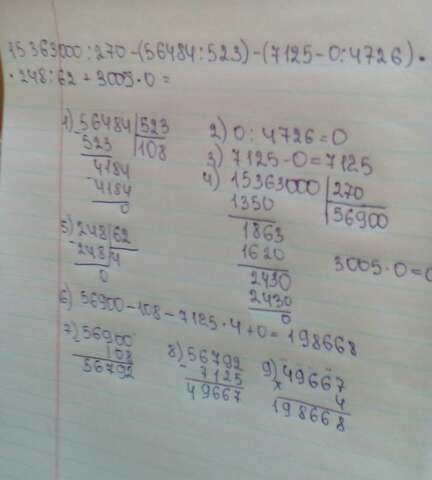 15363000:270-(56484:523)-(7125-0:4726)·
·248:62+3005·0=
1) 56484|523
523 |108
-4184
4184
0
2) 0:4726=0
3) 7125-0=7125
4) 15363000|270
1350 |56900
1863
1620
2430
2430
0
3005·0=0
5) 248|62
-248|4
0
6) 56900-108-7125·4+0=198668
7) 56900
108
56792
8) 56792
- 7125
49667
9) 49667
× 4
198668